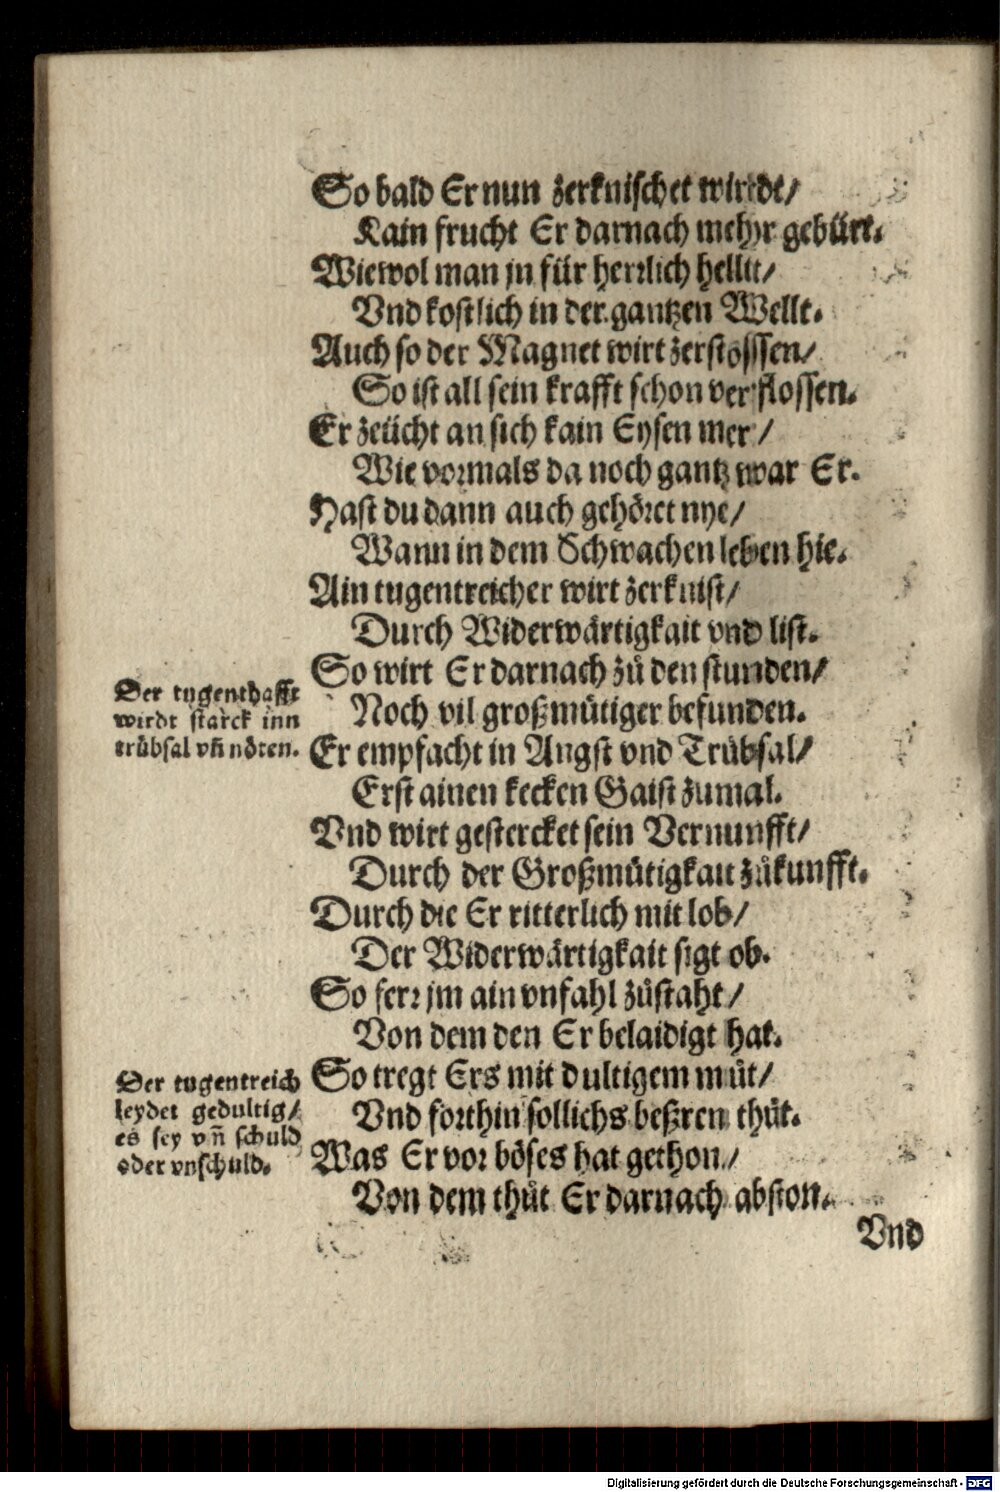 So bald Er nun zerknischet wirdt/
Kain frucht Er darnach mehr gebürt.
Wiewol man jn für herrlich hellt/
Vnd kostlich in der gantzen Wellt.
Auch so der Magnet wirt zerstossen/
So ist all sein krafft schon verflossen.
Er zeücht an sich kain Eysen mer/
Wie vormals da noch gantz war Er.
Hast du dann auch gehöret nye/
Wann in dem Schwachen leben hie.
Ain tugentreicher wirt zerknist/
Durch Widerwärtigkait vnd list.
So wirt Er darnach zů den stunden/
Noch vil großmütiger befunden.
Der tugenthafft
wirdt starck inn
trübsal vñ nöten.
Er empfacht in Angst vnd Trübsal/
Erst ainen kecken Gaist zumal.
Vnd wirt gestercket sein Vernunfft/
Durch der Großmütigkait zůkunfft.
Durch die Er ritterlich mit lob/
Der Widerwärtigkait sigt ob.
So ferr jm ain vnfahl zůstaht/
Von dem den Er belaidigt hat.
So tregt Ers mit dultigem můt/
Vnd forthin sollichs beßren thůt.
Der tugentreich
leydet gedultig/
es sey vñ schuld
oder vnschuld.
Was Er vor böses hat gethon/
Von dem thůt Er darnach abston.
Vnd
Digitalisierung gefördert durch die Deutsche Forschungsgemeinschaft - DFG